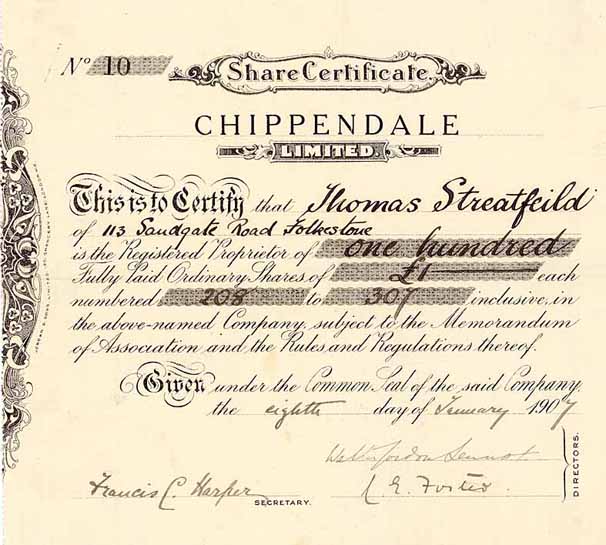 Nº 10
Share Certificate.
CHIPPENDALE
LIMITED.
This is to Certify that Thomas Streatfeild
of 113 Sandgate Road Folkestone
is the Registered Proprietor of one hundred
Fully Paid Ordinary Shares of £1 each
numbered 208 to 307 inclusive, in
the above-named Company, subject to the Memorandum
of Association and the Rules and Regulations thereof.
Given under the Common Seal of the said Company,
the eighth day of January 1907
Francis C. Harper
SECRETARY.
Gordon
E. Foster.
DIRECTORS.